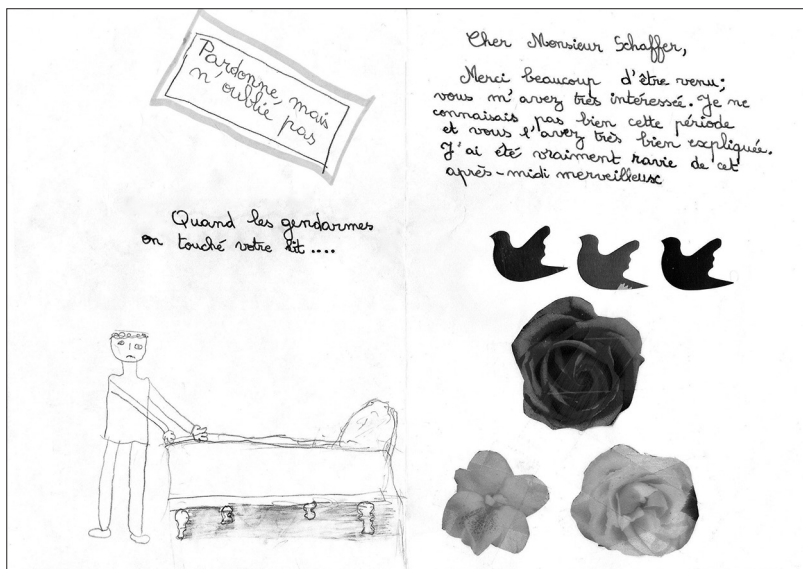 Pardonne, mais
n'oublie pas
Quand les gendarmes
on touché votre lit ....
Cher Monsieur Schaffer,
Merci beaucoup d'être venu;
vous m'avez très intéressée. Je ne
connaisais pas bien cette période
et vous l'avez très bien expliquée.
J'ai été vraiment ravie de cet
après-midi merveilleux